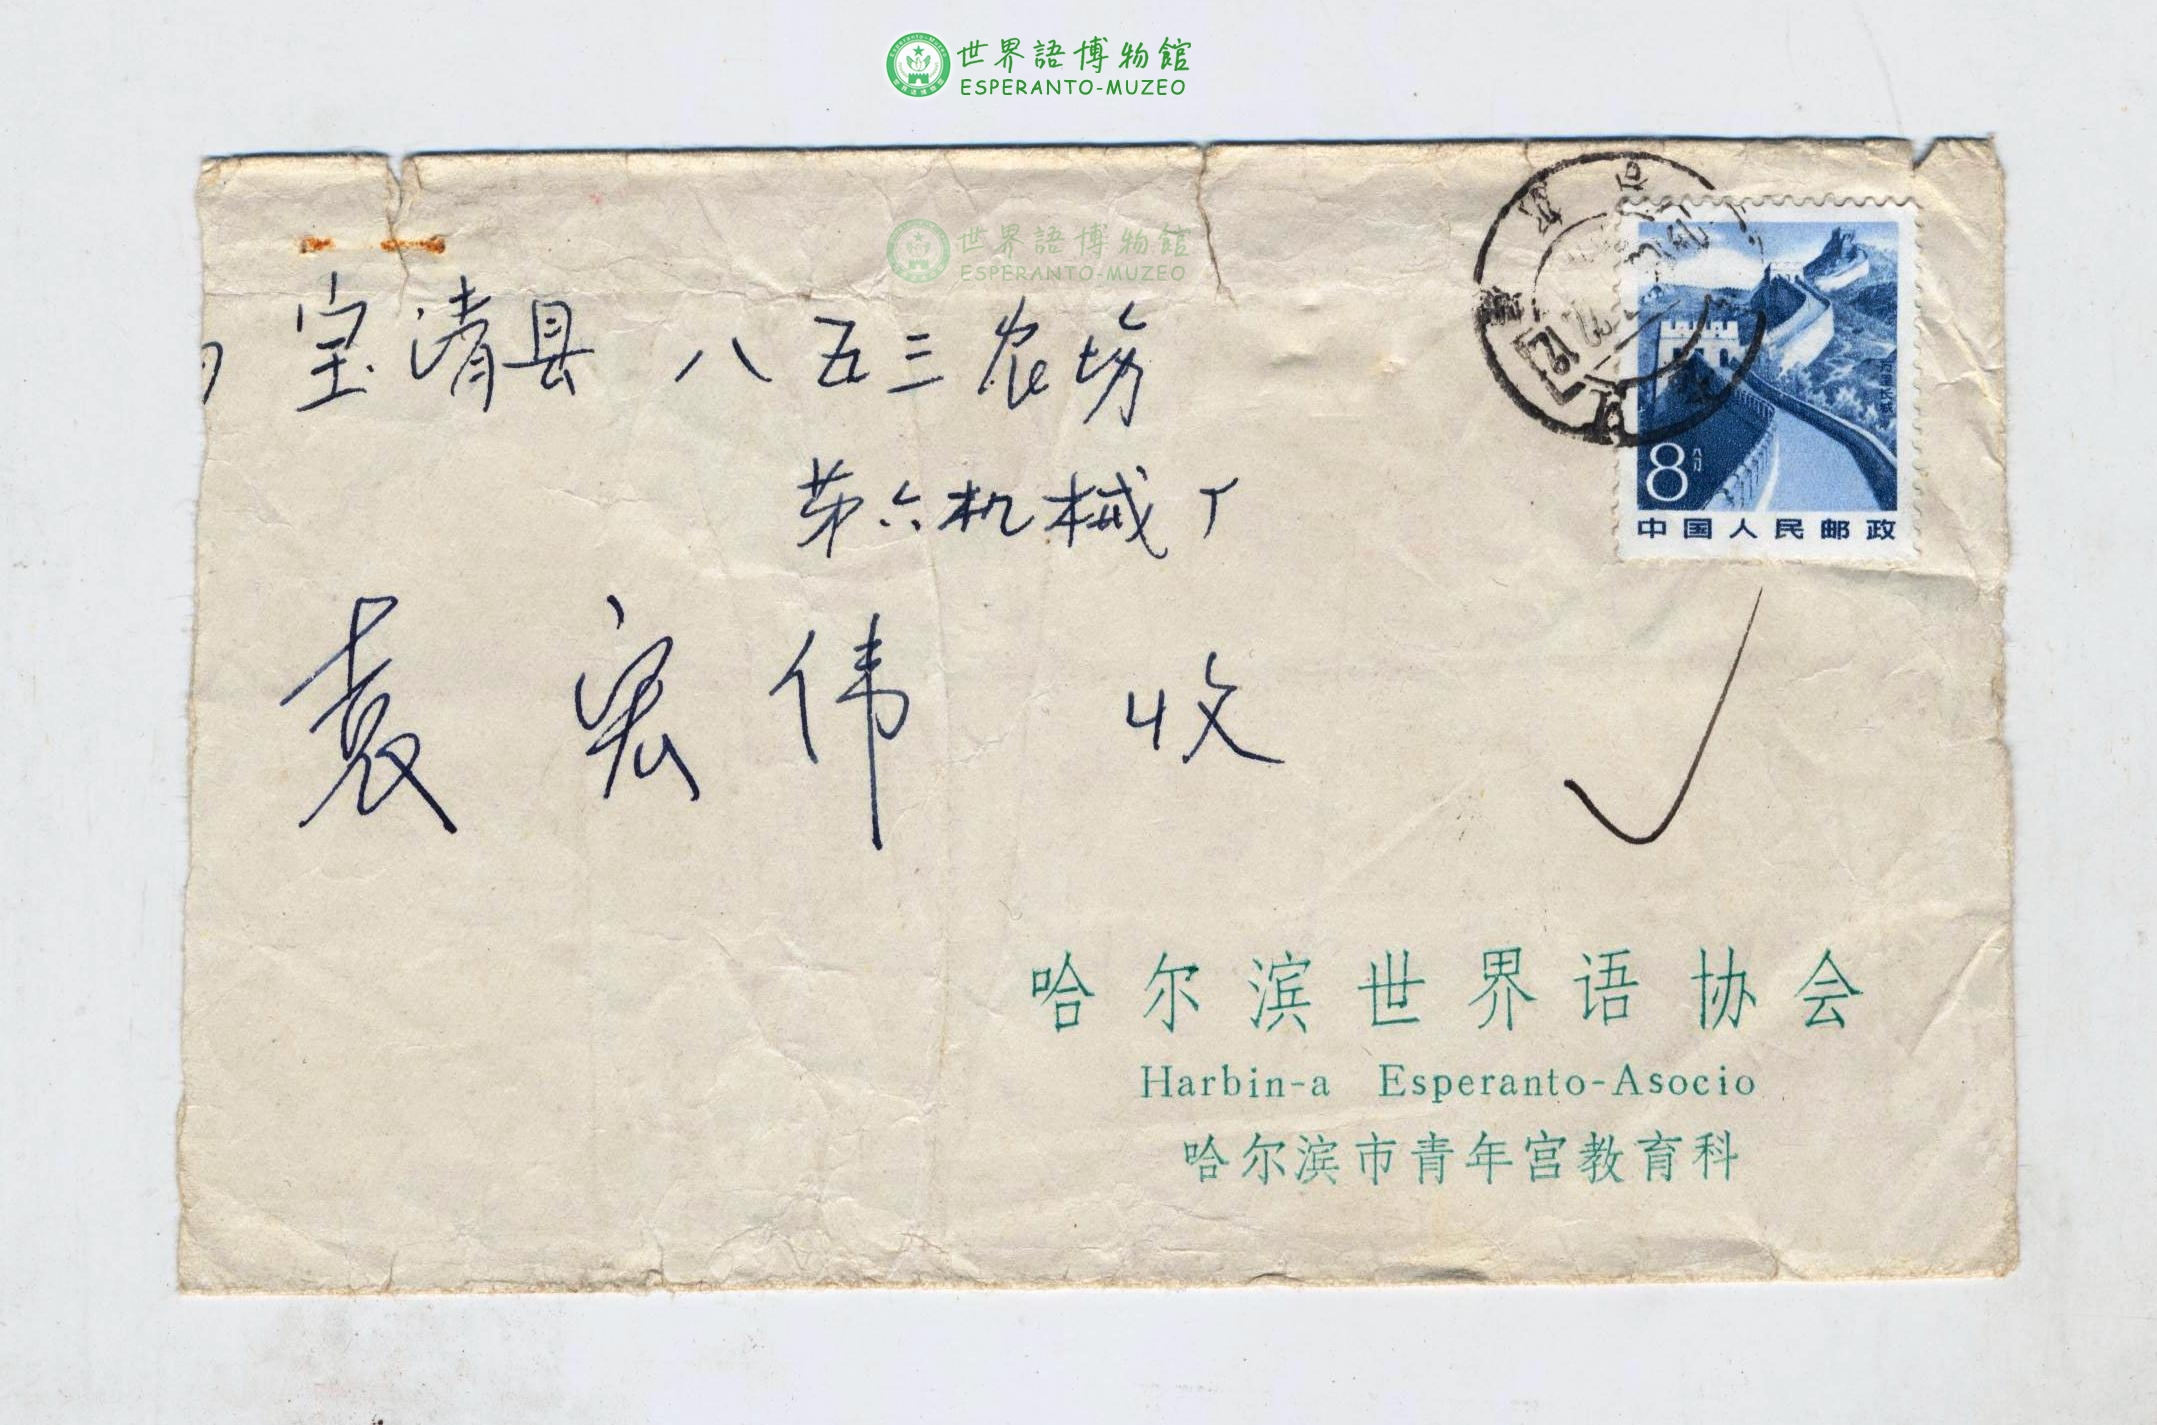 世界語博物館
ESPERANTO-MUZEO
世界語博物館
ESPERANTO-MUZEO
宝清县 八五三农场
第六机械厂
袁宏伟 收
8分
中国人民邮政
哈尔滨世界语协会
Harbin-a Esperanto-Asocio
哈尔滨市青年宫教育科